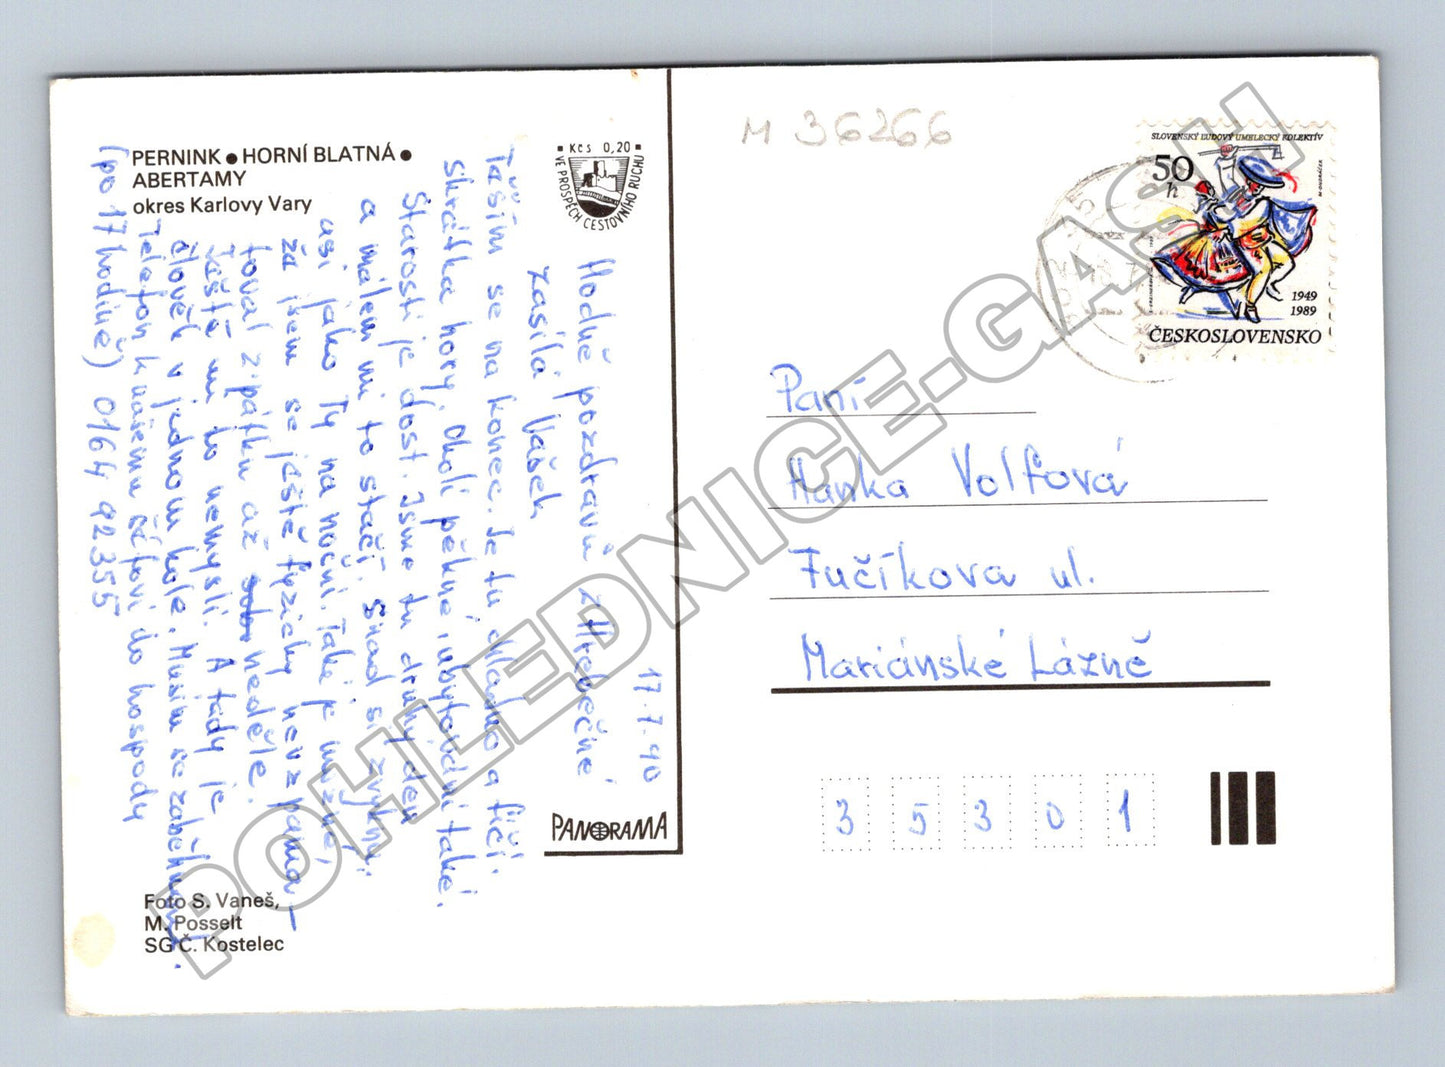 M 36266
PERNINK ● HORNÍ BLATNÁ ●
ABERTAMY
okres Karlovy Vary
Kčs 0,20
VE PROSPĚCH CESTOVNÍHO RUCHU
SLOVENSKÝ ĽUDOVÝ UMELECKÝ KOLEKTÍV
50 h
1949
1989
ČESKOSLOVENSKO
17.7.90
Hodně pozdravů z Hřebečné
zasílá Vašek
Těším se na konec. Je tu dlouho a fičí.
Zkrátka hory. Okolí pěkné, ubytování také.
Starosti je dost. Jsme tu druhý den
a málem mi to stačí. Snad si zvyknu
asi jako Ty na noční. Také je možné,
že jsem se ještě fyzicky nevzpama-
toval z pátku až neděle.
Ještě mi to nemyslí. A tady je
člověk v jednom kole. Musím se zaběhnout.
Telefon k našemu šéfovi do hospody
(po 17 hodině) 0164 92355
Paní
Hanka Volfová
Fučíkova ul.
Mariánské Lázně
35301
PANORAMA
Foto S. Vaneš,
M. Posselt
SG Č. Kostelec
POHLEDNICE-GASH